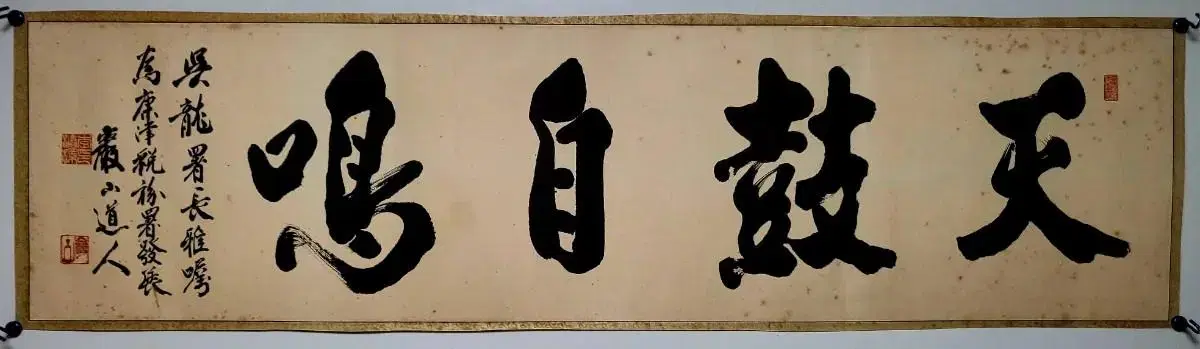 天鼓自鳴
吳龍署長雅囑
為康津稅務署發展
巖山道人